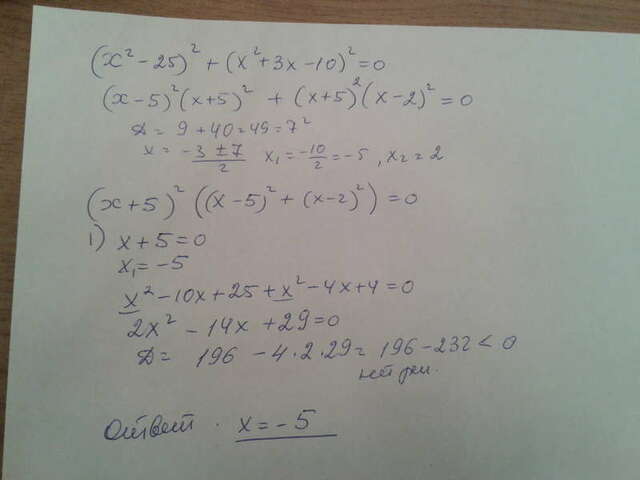 (x² - 25)² + (x² + 3x - 10)² = 0
(x - 5)² (x + 5)² + (x + 5)² (x - 2)² = 0
D = 9 + 40 = 49 = 7²
x = -3 ± 7 / 2   x₁ = -10/2 = -5, x₂ = 2
(x + 5)² ((x - 5)² + (x - 2)²) = 0
1) x + 5 = 0
x₁ = -5
x² - 10x + 25 + x² - 4x + 4 = 0
2x² - 14x + 29 = 0
D = 196 - 4·2·29 = 196 - 232 < 0
нет реш.
Ответ. x = -5